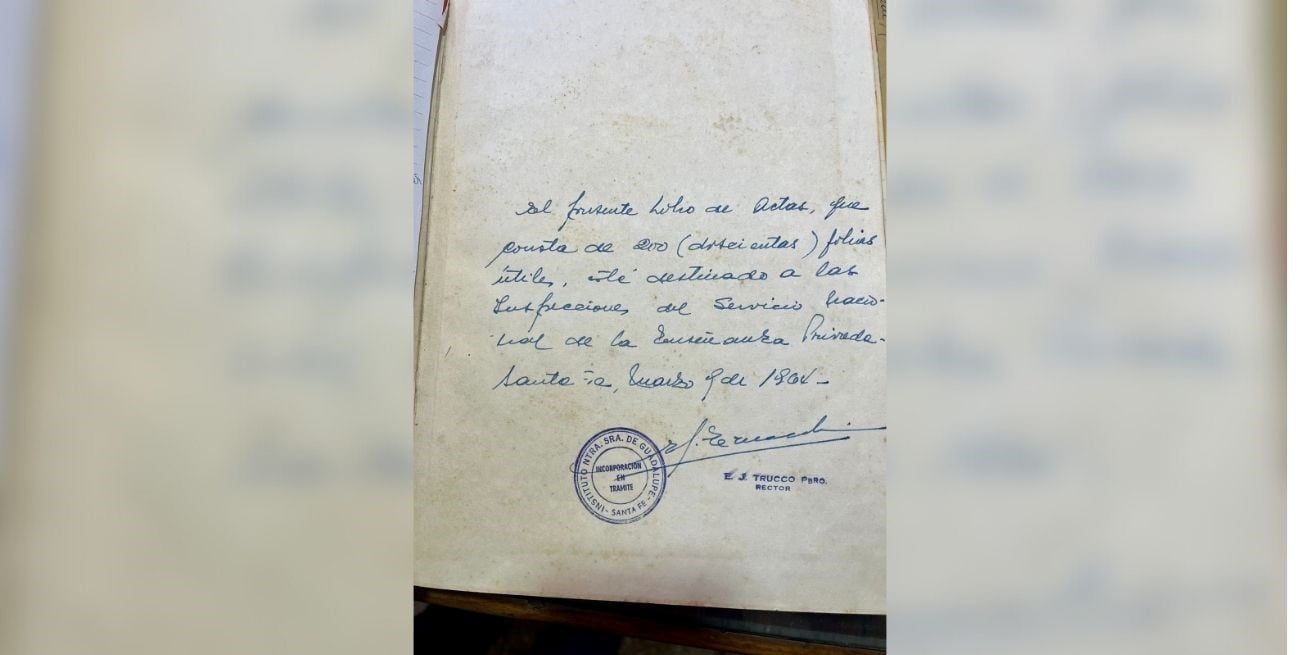 El presente Libro de Actas, que
consta de 200 (doscientas) folias
útiles, está destinado a las
Inspecciones del Servicio Nacio-
nal de la Enseñanza Privada.-
Santa Fe, Marzo 9 de 1964.-
INSTITUTO NTRA. SRA. DE GUADALUPE - SANTA FE -
INCORPORACIÓN
EN
TRAMITE
E. J. TRUCCO PBRO.
RECTOR